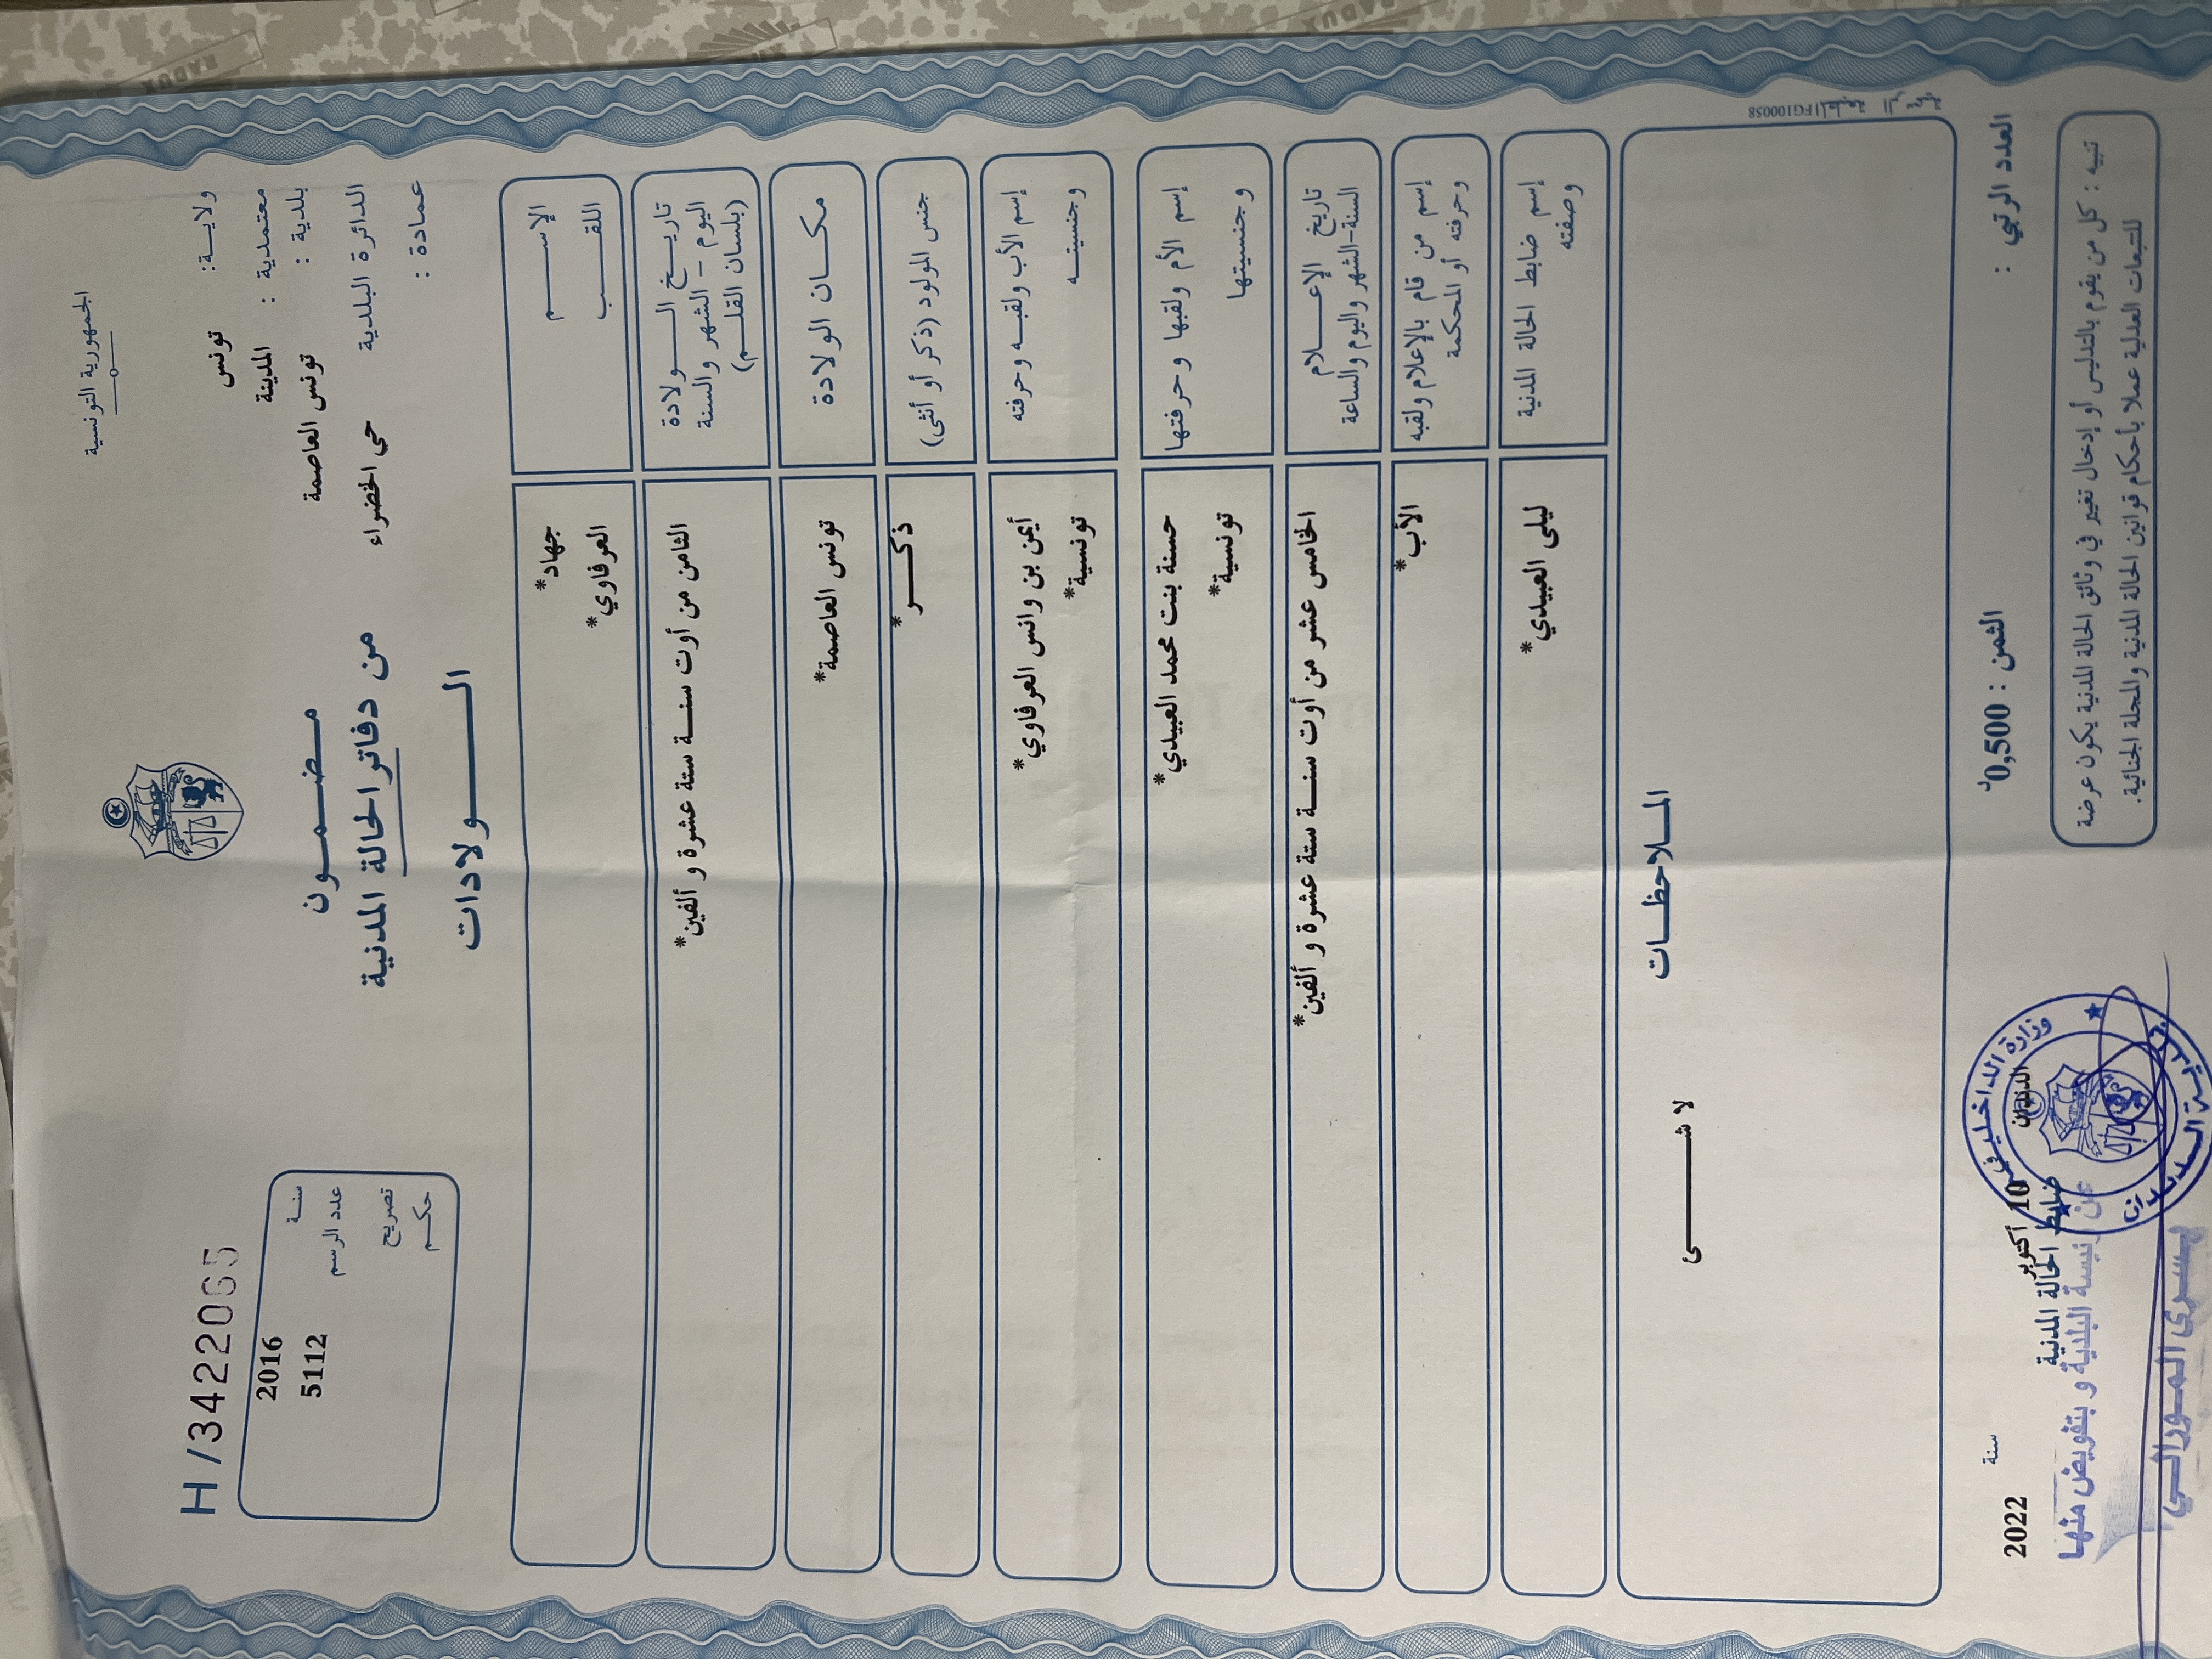 الجمهورية التونسية
ولاية : تونس
معتمدية : المدينة
بلدية : تونس العاصمة
الدائرة البلدية حي الخضراء
عمادة :
H/3422065
سنة 2016
عدد الرسم 5112
تصريح
حكم
مضمون
من دفاتر الحالة المدنية
الولادات
الإسم جهاد*
اللقب العرفاوي*
تاريخ الولادة
اليوم - الشهر والسنة
(بلسان القلم)
الثامن من أوت سنة ستة عشرة و ألفين*
مكان الولادة تونس العاصمة*
جنس المولود (ذكر أو أنثى) ذكر*
إسم الأب ولقبه وحرفته أيمن بن وانس العرفاوي*
وجنسيته تونسية*
إسم الأم ولقبها وحرفتها حسنة بنت محمد العبيدي*
وجنسيتها تونسية*
تاريخ الإعلام
السنة-الشهر واليوم والساعة
الخامس عشر من أوت سنة ستة عشرة و ألفين*
إسم من قام بالإعلام ولقبه الأب*
وحرفته أو المحكمة
إسم ضابط الحالة المدنية ليلى العبيدي*
وصفته
الملاحظات
لا شيء
المطبعة الرسمية FG100058
العدد الرتبي :
الثمن : 0,500د
10 أكتوبر سنة 2022
ضابط الحالة المدنية
وزارة الداخلية
عن رئيسة البلدية و بتفويض منها
تنبيه : كل من يقوم بالتدليس أو إدخال تغيير في وثائق الحالة المدنية يكون عرضة
للتتبعات العدلية عملا بأحكام قوانين الحالة المدنية والمجلة الجنائية.